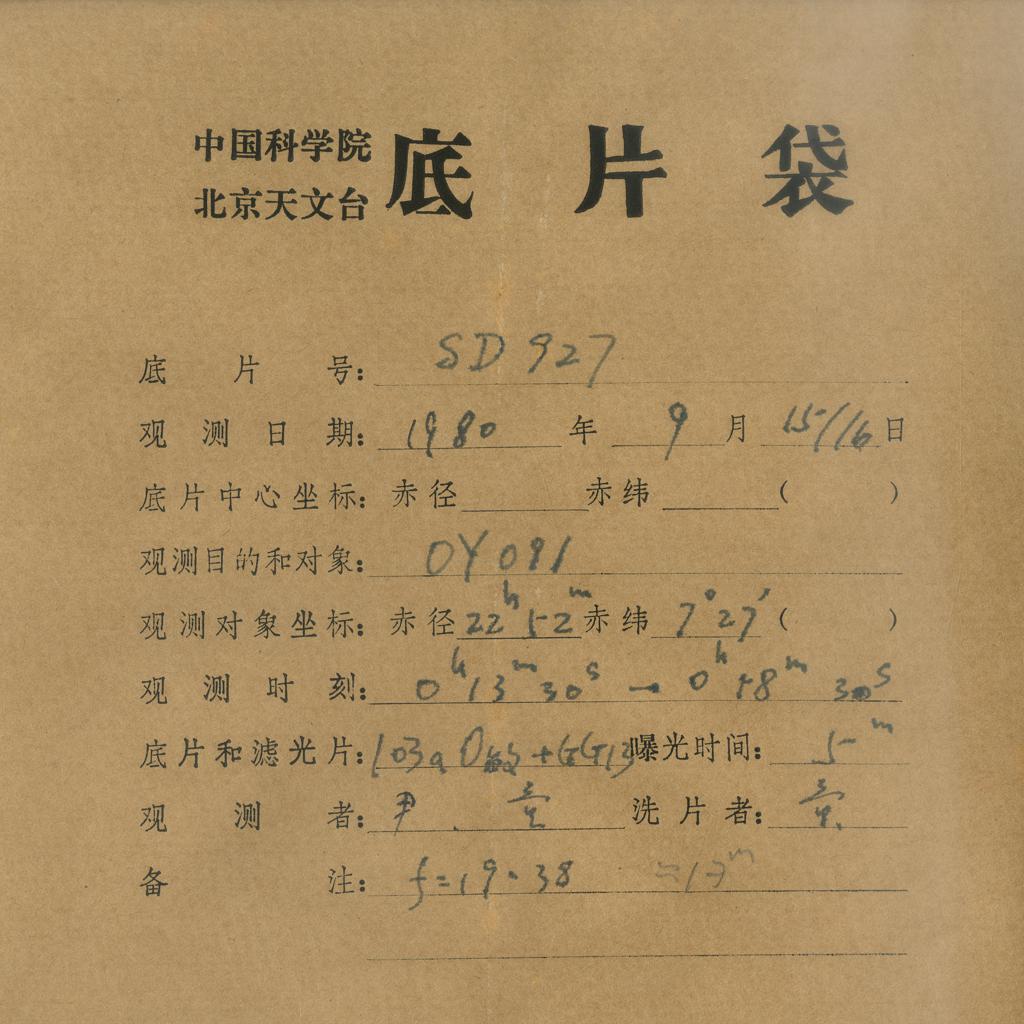 中国科学院
北京天文台
底片袋
底片号: SD 927
观测日期: 1980 年 9 月 15/16 日
底片中心坐标: 赤径 赤纬 ( )
观测目的和对象: OY 091
观测对象坐标: 赤径 22h 52m 赤纬 7°27′ ( )
观测时刻: 0h13m30s → 0h58m 30s
底片和滤光片: 103aO敏+GG13 曝光时间: 5m
观测者: 尹. 洗片者:
备注: f=19.38 =13m